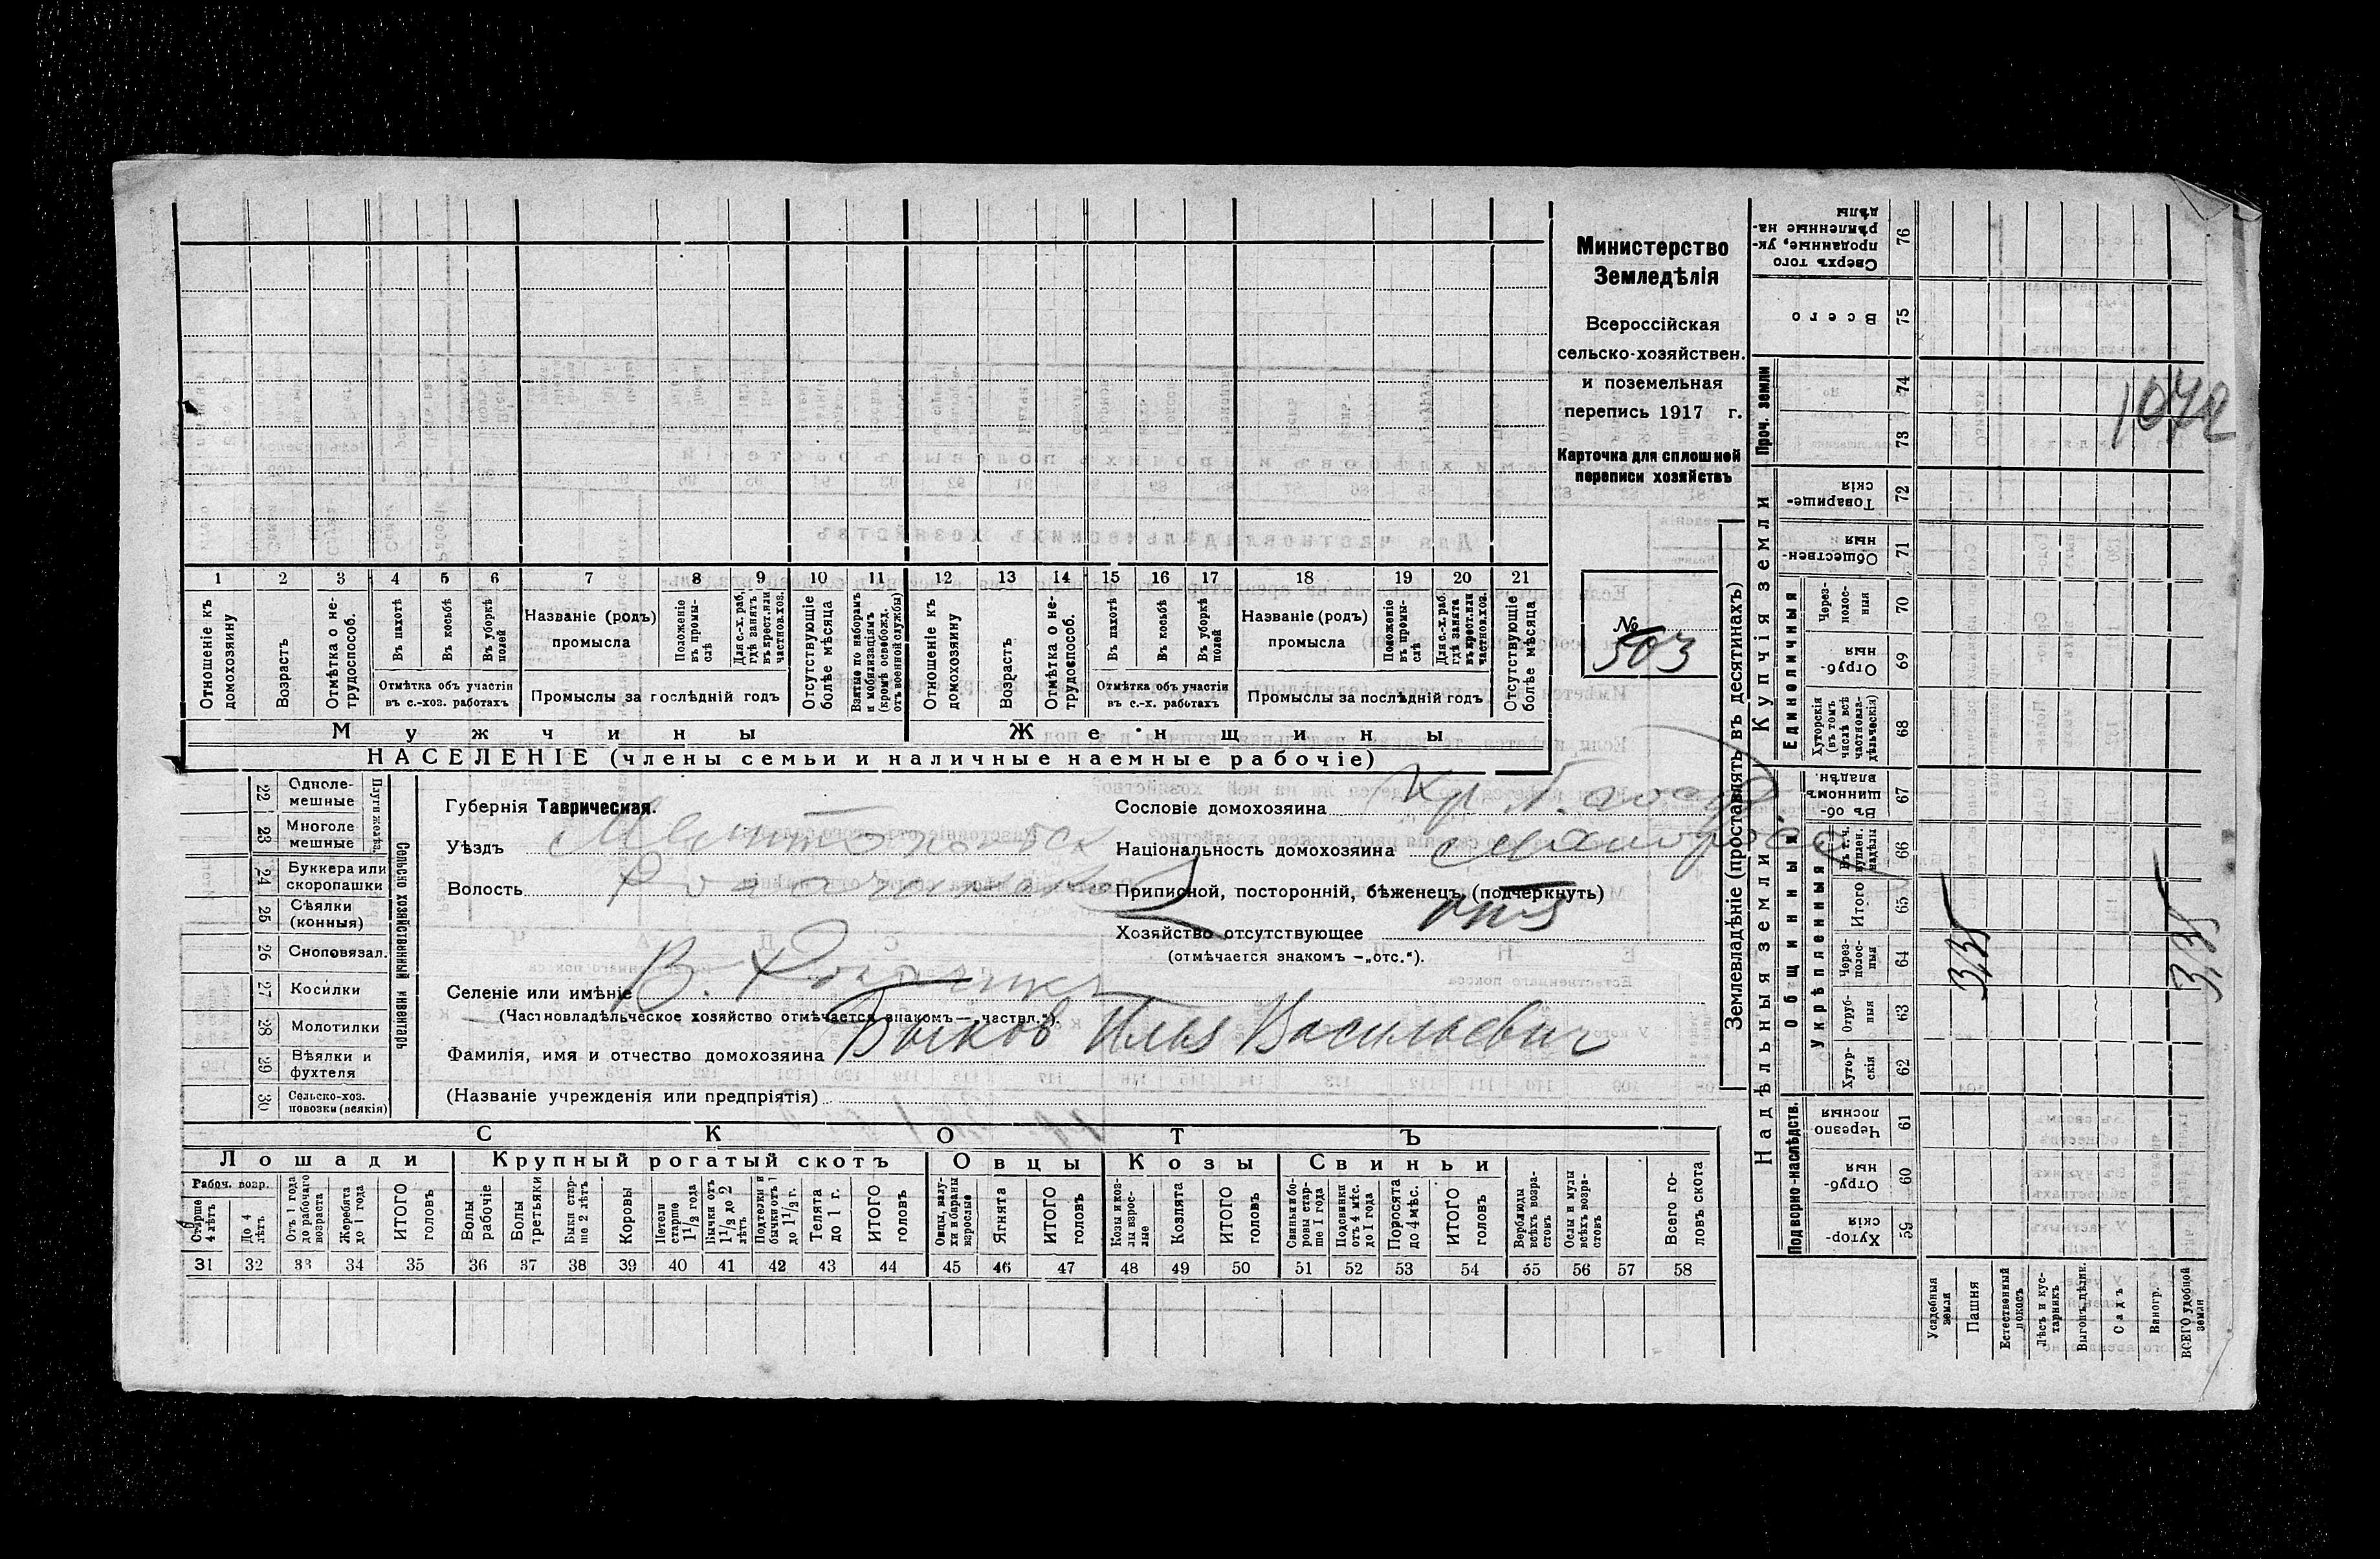 Министерство
Земледѣлія
Всероссійская
сельско-хозяйствен.
и поземельная
перепись 1917 г.
Карточка для сплошной
переписи хозяйствъ
№
503
1 2 3 4 5 6 7 8 9 10 11 12 13 14 15 16 17 18 19 20 21
Отношеніе къ домохозяину
Возрастъ
Отмѣтка о нетрудоспособ.
Въ пахотѣ
Въ косьбѣ
Въ уборкѣ полей
Отмѣтка объ участіи въ с.-хоз. работахъ
Названіе (родъ) промысла
Положеніе въ промыслѣ
Для с.-х. раб. гдѣ занятъ въ крест. или частнов. хоз.
Промыслы за послѣдній годъ
Отсутствующіе болѣе мѣсяца
Взятые по наборамъ и мобилизаціямъ (кромѣ освобожд. отъ военной службы)
Отношеніе къ домохозяину
Возрастъ
Отмѣтка о нетрудоспособ.
Въ пахотѣ
Въ косьбѣ
Въ уборкѣ полей
Отмѣтка объ участіи въ с.-х. работахъ
Названіе (родъ) промысла
Положеніе въ промыслѣ
Для с.-х. раб. гдѣ занята въ крест. или частнов. хоз.
Промыслы за послѣдній годъ
Отсутствующіе болѣе мѣсяца
Мужчины Женщины
НАСЕЛЕНІЕ (члены семьи и наличные наемные рабочіе)
Сельско хозяйственный инвентарь
Плуги желѣз.
22 Однолемешные
23 Многолемешные
24 Буккера или скоропашки
25 Сѣялки (конныя)
26 Сноповязал.
27 Косилки
28 Молотилки
29 Вѣялки и фухтеля
30 Сельско-хоз. повозки (всякія)
Губернія Таврическая.
Уѣздъ Мелитопольск
Волость Рогачинск
Селеніе или имѣніе В. Рогачикъ
(Частновладѣльческое хозяйство отмѣчается знакомъ — „частвл.")
Фамилія, имя и отчество домохозяина Быков Илья Васильевич
(Названіе учрежденія или предпріятія)
Сословіе домохозяина Кр.
Національность домохозяина Малорос
Приписной, посторонній, бѣженецъ (подчеркнуть)
Хозяйство отсутствующее отс
(отмѣчается знакомъ — „отс.").
СКОТЪ
Лошади Крупный рогатый скотъ Овцы Козы Свиньи
Рабоч. возр.
Старше 4 лѣтъ
До 4 лѣтъ
Отъ 1 года до рабочаго возраста
Жеребята до 1 года
ИТОГО головъ
Волы рабочіе
Волы третьяки
Быки старше 2 лѣтъ
Коровы
Нетели старше 1 1/2 года
Бычки отъ 1 1/2 до 2 лѣтъ
Подтелки и бычки отъ 1 до 1 1/2 г.
Телята до 1 г.
ИТОГО головъ
Овцы, валухи и бараны взрослые
Ягнята
ИТОГО головъ
Козы и козлы взрослые
Козлята
ИТОГО головъ
Свиньи и боровы старше 1 года
Подсвинки отъ 4 мѣс. до 1 года
Поросята до 4 мѣс.
ИТОГО головъ
Верблюды всѣхъ возрастовъ
Ослы и мулы всѣхъ возрастовъ
Всего головъ скота
31 32 33 34 35 36 37 38 39 40 41 42 43 44 45 46 47 48 49 50 51 52 53 54 55 56 57 58
Землевладѣніе (проставлять въ десятинахъ)
Надѣльныя земли Купчія земли Проч. земли
Подворно-наслѣдств. Общинныя Единоличныя
Укрѣпленныя
Сверхъ того проданные, укрѣпленные надѣлы 76
Всего 75
74
73
Товарищескія 72
Общественныя 71
Черезполосныя 70
Отрубныя 69
Хуторскія (въ томъ числѣ всѣ частновладѣльческія) 68
Въ общинномъ владѣн. 67
Въ т.ч. куплен. надѣлы 66
Итого 65
Черезполосныя 64
Отрубныя 63
Хуторскія 62
Черезполосныя 61
Отрубныя 60
Хуторскія 59
Усадебныя земли
Пашня
Естественный покосъ
Лѣсъ и кустарникъ
Выгонъ дѣлин.
Садъ
Виногр.
ВСЕГО удобной земли
1072